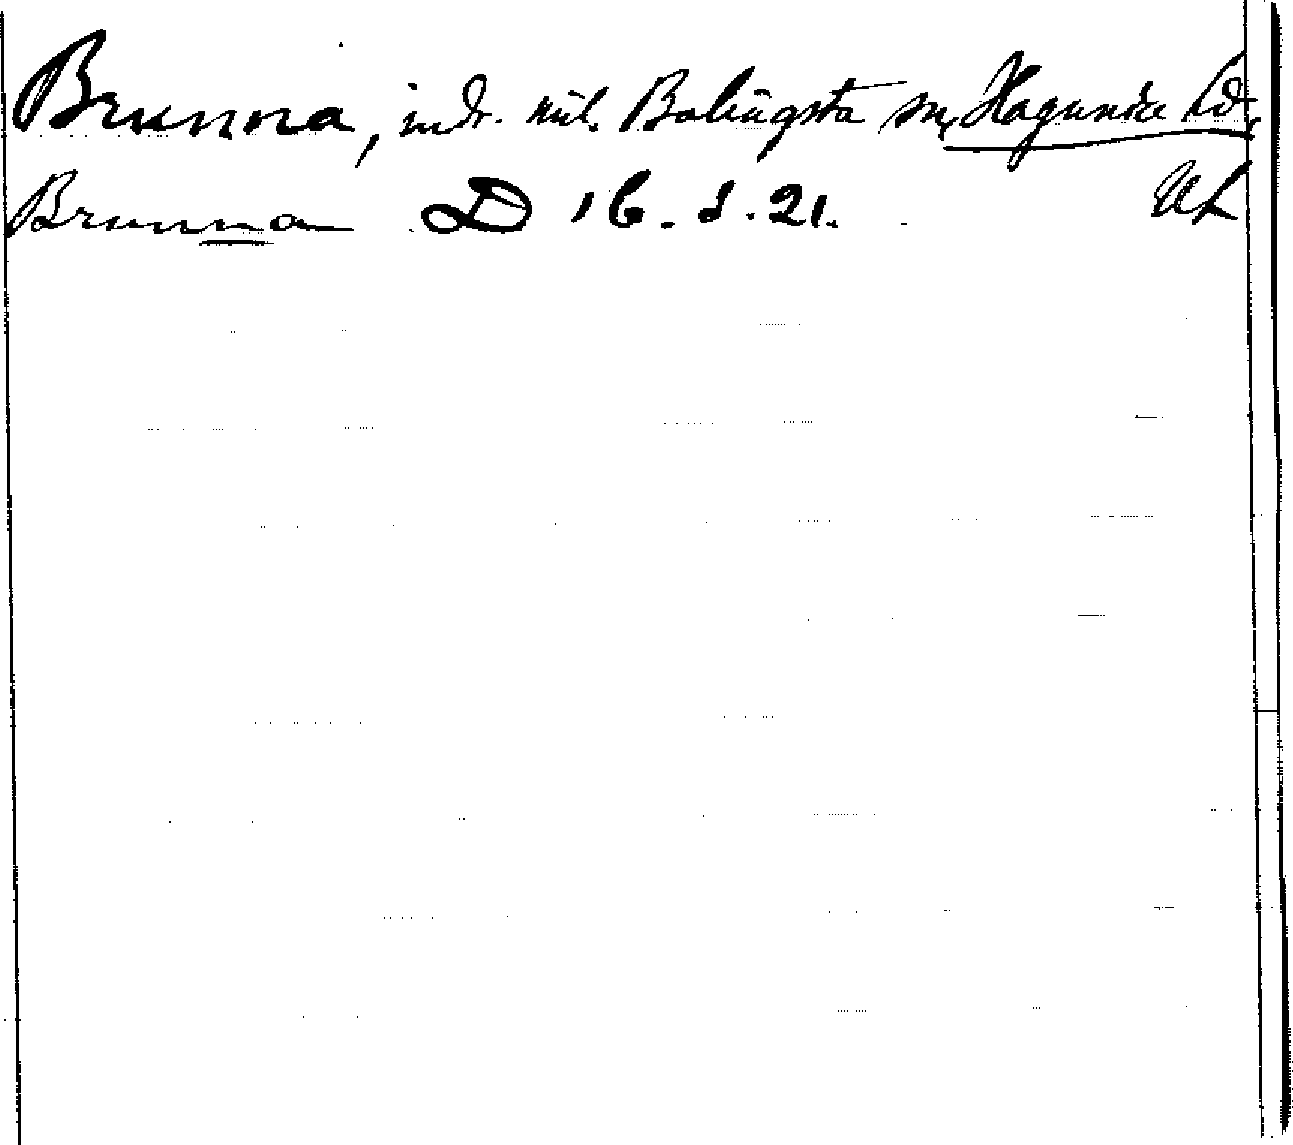 Brunna, indr. mil. Bälingsta sn, Hagunda hd,
Brunna D 16.8.21. Ul